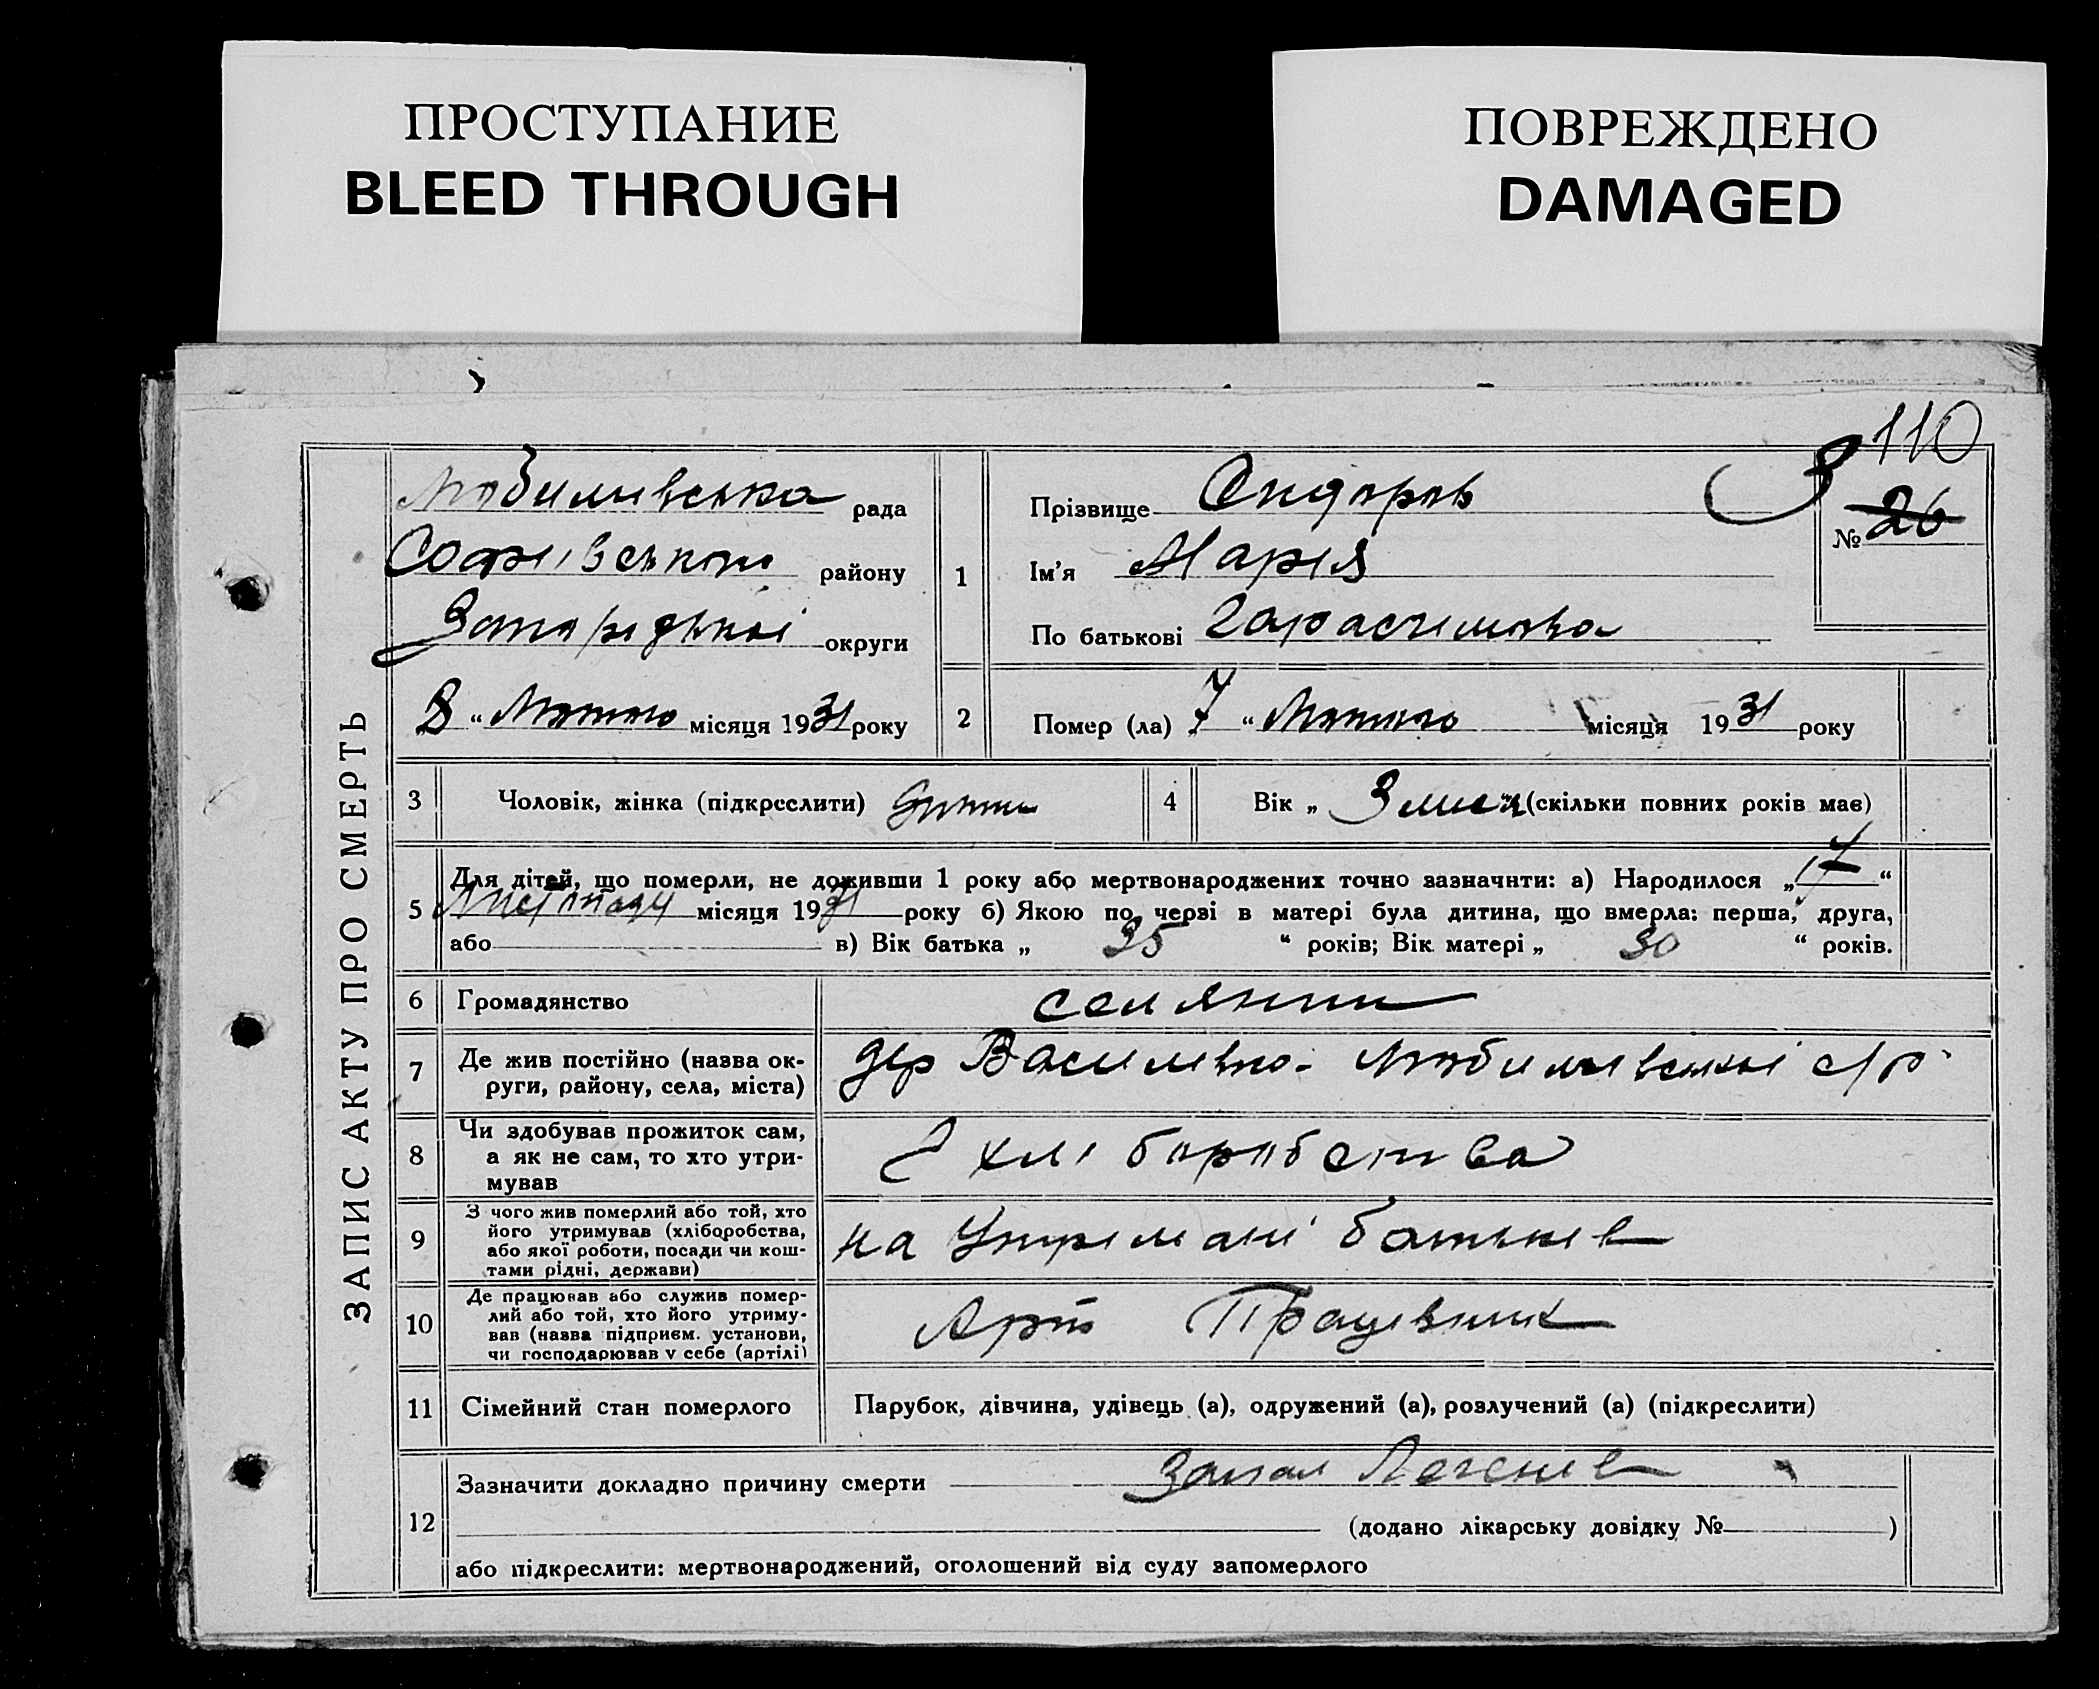 ПРОСТУПАНИЕ
BLEED THROUGH
ПОВРЕЖДЕНО
DAMAGED
110
ЗАПИС АКТУ ПРО СМЕРТЬ
рада
району
округи
8 “ Лютого місяця 1931 року
1
Прізвище Сидоров
Ім'я Марія
По батькові
3
№ 26
2
Помер (ла) 7 “ Лютого місяця 1931 року
3
Чоловік, жінка (підкреслити)
4
Вік „ 3 (скільки повних років має)
5
Для дітей, що померли, не доживши 1 року або мертвонароджених точно зазначити: а) Народилося „ 17 “
Листопаду місяця 19 року б) Якою по черві в матері була дитина, що вмерла: перша, друга,
або в) Вік батька „ 35 “ років; Вік матері „ 30 “ років.
6
Громадянство
селянин
7
Де жив постійно (назва ок-
руги, району, села, міста)
дер с/р
8
Чи здобував прожиток сам,
а як не сам, то хто утри-
мував
З хліборобства
9
З чого жив померлий або той, хто
його утримував (хліборобства,
або якої роботи, посади чи кош-
тами рідні, держави)
на батьків
10
Де працював або служив помер-
лий або той, хто його утриму-
вав (назва підприєм. установи,
чи господарював у себе (артілі)
Арт
11
Сімейний стан померлого
Парубок, дівчина, удівець (а), одружений (а), розлучений (а) (підкреслити)
12
Зазначити докладно причину смерти Запал Легенів
(додано лікарську довідку № )
або підкреслити: мертвонароджений, оголошений від суду запомерлого